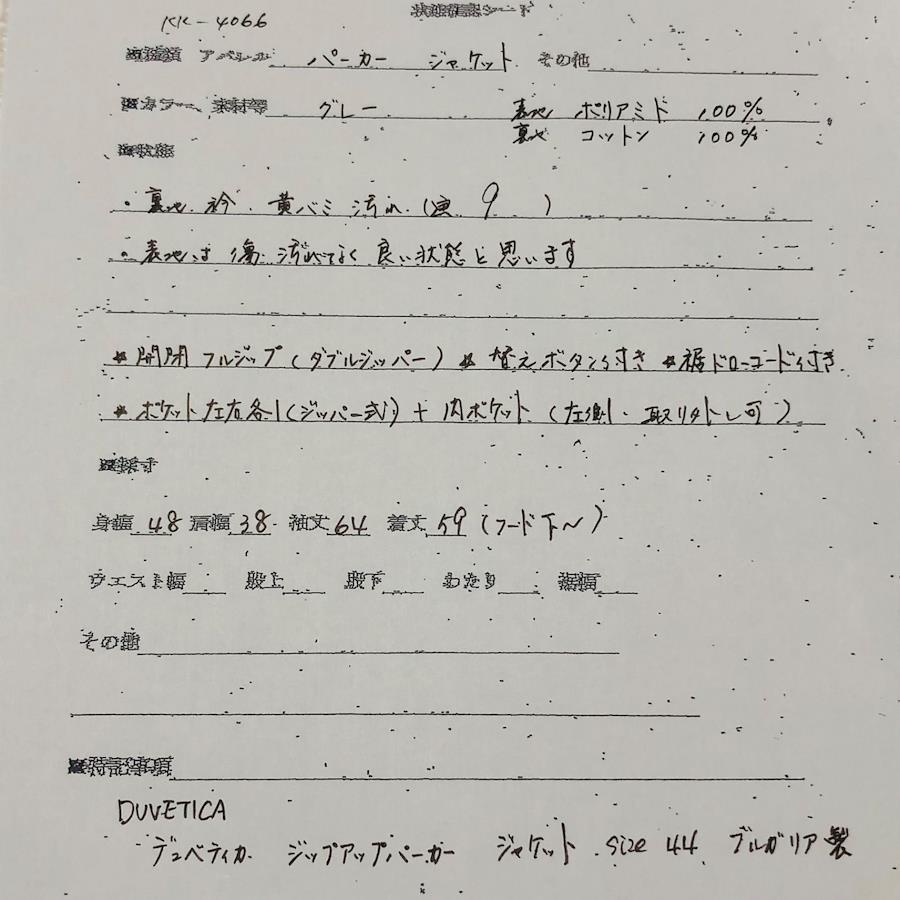 KK-4066
状態確認シート
アパレル パーカー ジャケット その他
■カラー、素材等 グレー 表地 ポリアミド 100%
裏地 コットン 100%
■状態
・裏地 衿 黄バミ 汚れ (画 9 )
・表地は 傷 汚れなく 良い状態と思います
★開閉 フルジップ(ダブルジッパー) ★替えボタン付き ★裾ドローコード付き
★ポケット左右各1(ジッパー式) + 内ポケット (左側・取り外し可)
■採寸
身幅 48 肩幅 38 袖丈 64 着丈 59 (フード下〜)
ウエスト幅 股上 股下 わたり 裾幅
その他
■特記事項
DUVETICA
デュベティカ ジップアップパーカー ジャケット size 44 ブルガリア製